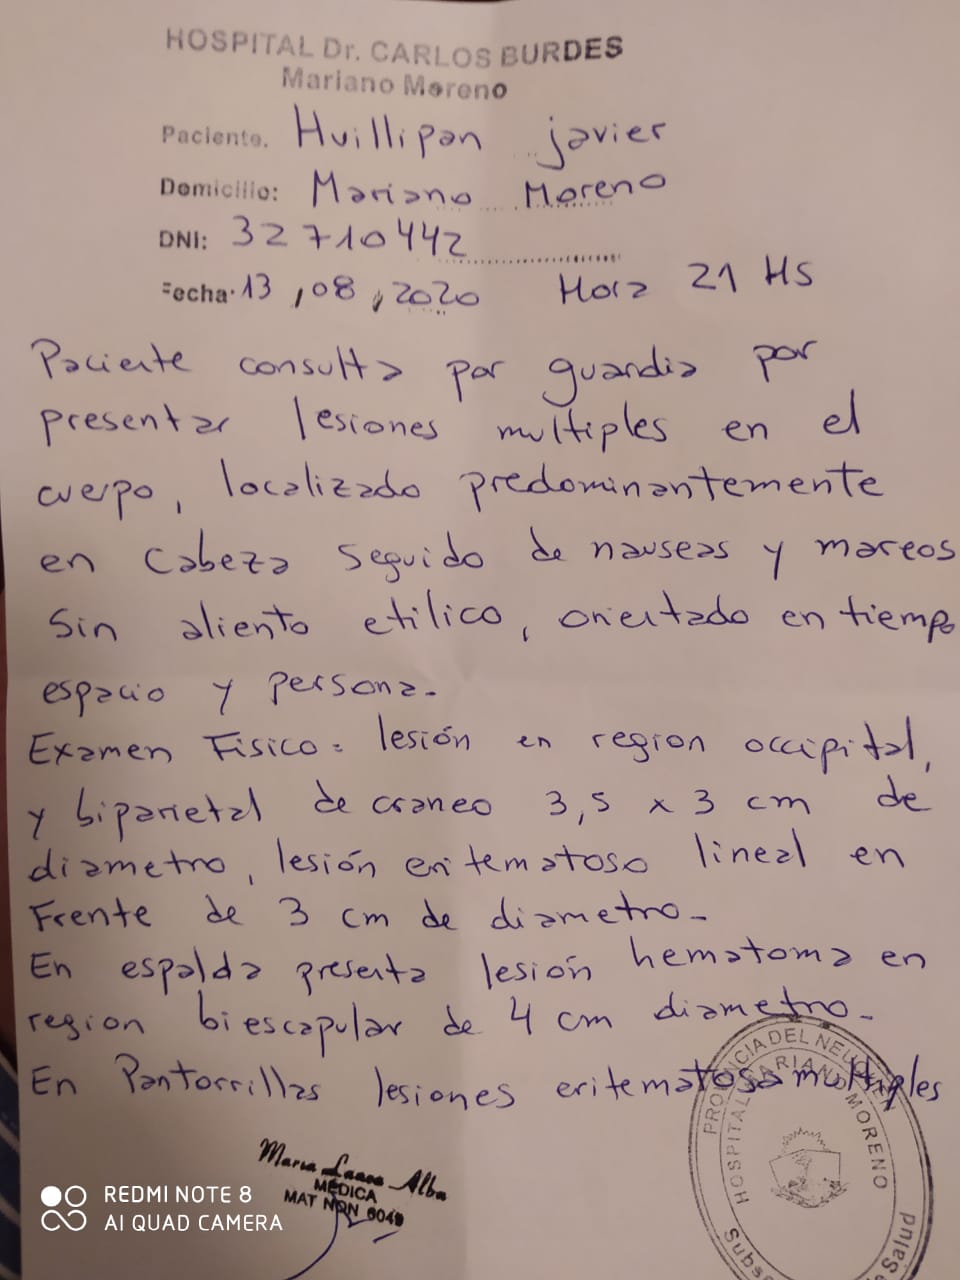 HOSPITAL Dr. CARLOS BURDES
Mariano Moreno
Paciente. Huillipan Javier
Domicilio: Mariano Moreno
DNI: 32710442
Fecha 13,08,2020 Hora 21 HS
Paciente consulta por guardia por
presentar lesiones multiples en el
cuerpo, localizado predominantemente
en cabeza seguido de nauseas y mareos
Sin aliento etilico, orientado en tiempo
espacio y persona.
Examen Fisico: lesión en region occipital,
y biparietal de craneo 3,5 x 3 cm de
diametro, lesión eritematoso lineal en
Frente de 3 cm de diametro-
En espalda presenta lesión hematoma en
region biescapular de 4 cm diametro-
En Pantorrillas lesiones eritematosa multiples
Maria Laura Alba
MEDICA
MAT NQN 6049
PROVINCIA DEL NEUQUEN
HOSPITAL MARIANO MORENO
Salud
REDMI NOTE 8
AI QUAD CAMERA